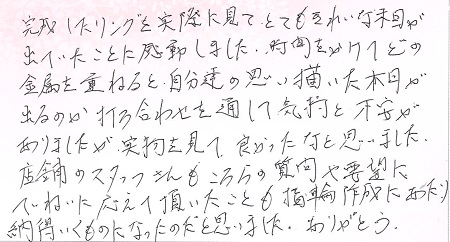 完成したリングを実際に見て、とてもきれいな木目が
出ていたことに感動しました。時間をかけてどの
金属を重ねると、自分達の思い描いた木目が
出るのか 打ち合わせを通して気持と不安が
ありましたが、実物を見て、良かったなと思いました。
店舗のスタッフさんもこちらの質問や要望に
ていねいに応えて頂いたことも 指輪作成にあたり
納得いくものになったのだと思いました。ありがとう。